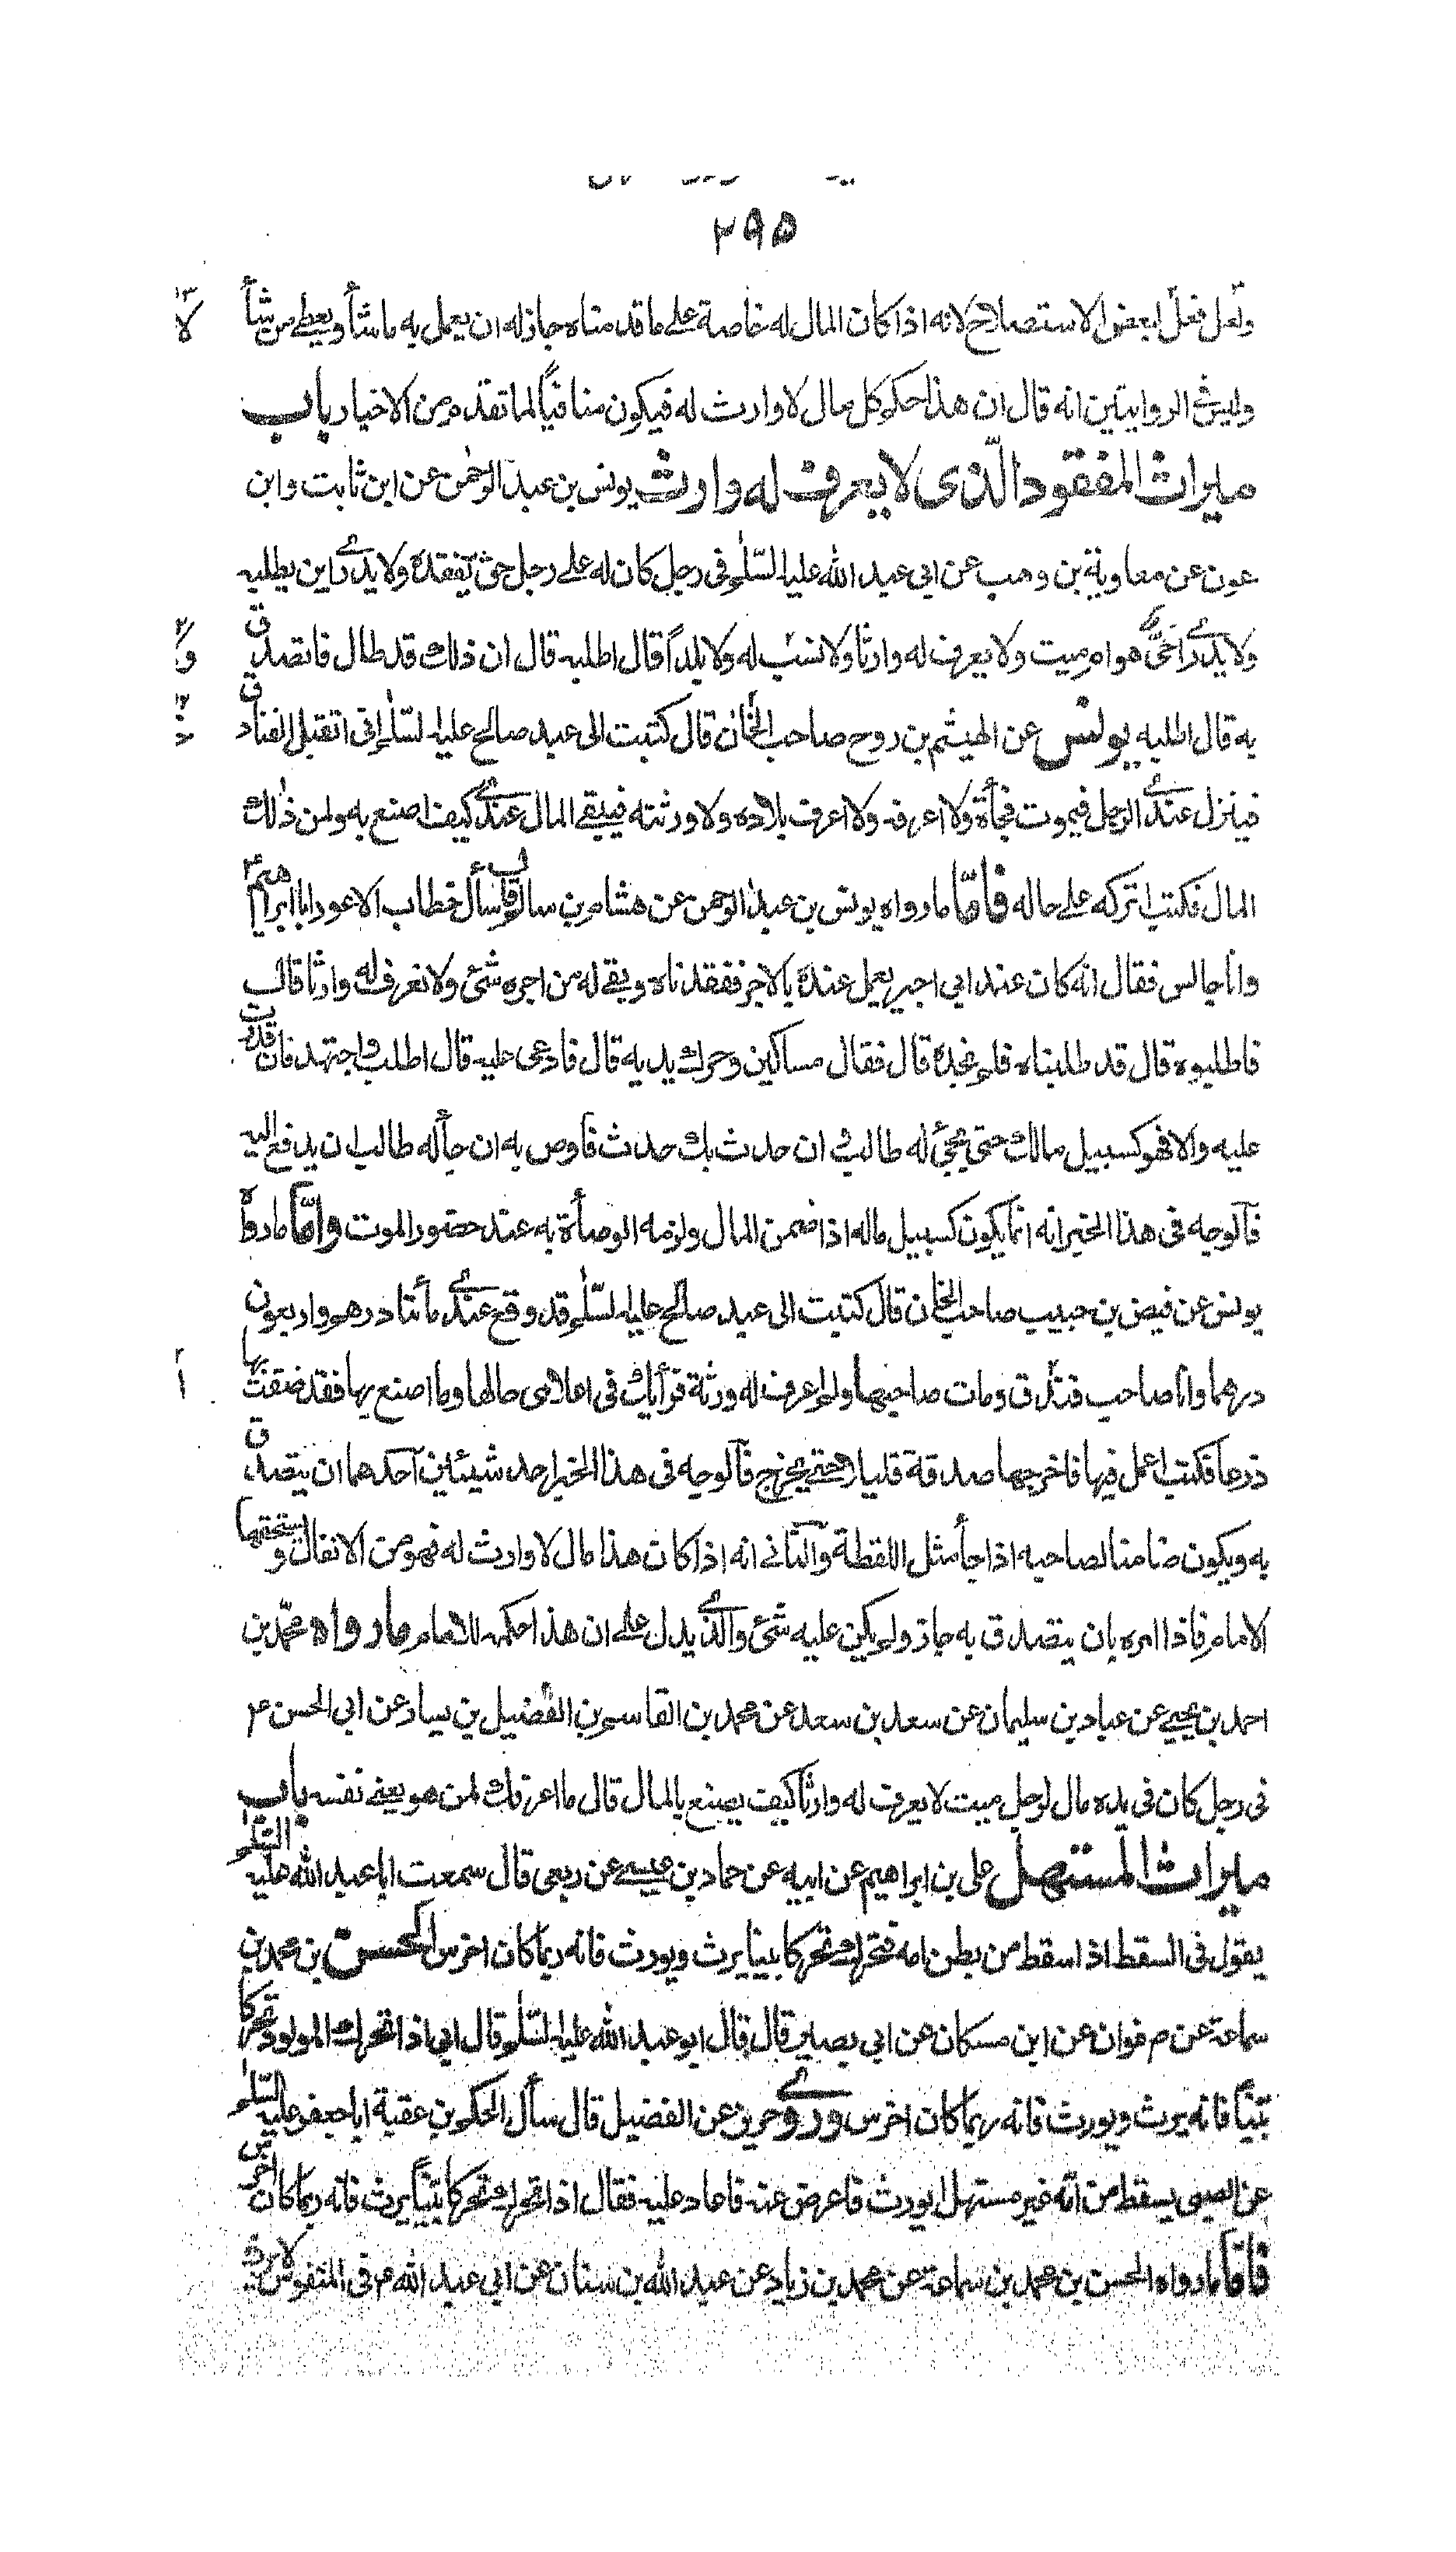 ٢٩٥
ولعل فعل لبعض الاستصلاح لانه اذا كان المال له خاصة على ما قدمناه جاز له ان يعمل به ما شاء ويعطى من شاء
وليس فى الروايتين انه قال ان هذا حكم كل مال لا وارث له فيكون منافياً لما تقدم من الاخبار باب
ميراث المفقود الّذى لا يعرف له وارث يونس بن عبد الرحمن عن ابن ثابت وابن
عون عن معاوية بن وهب عن ابى عبد الله عليه السّلم فى رجل كان له على رجل حق ففقده ولا يدرى اين يطلبه
ولا يدرى احىّ هو ام ميت ولا يعرف له وارثا ولا نسب له ولا بلداً قال اطلبه قال ان ذلك قد طال فاتصدق
به قال اطلبه يونس عن الهيثم بن روح صاحب الخان قال كتبت الى عبد صالح عليه السّلم انى اتقبل الفنادق
فينزل عندى الرجل فيموت فجأة ولا اعرفه ولا اعرف بلاده ولا ورثته فيبقى المال عندى كيف اصنع به ولمن ذلك
المال فكتب اتركه على حاله فامّا ما رواه يونس بن عبد الرحمن عن هشام بن سالم قال سأل خطاب الاعور ابا ابراهيم ع
وانا جالس فقال انه كان عند ابى اجير يعمل عنده بالاجر ففقدناه وبقى له من اجره شئ ولا نعرف له وارثا قال
فاطلبوه قال قد طلبناه فلم نجده قال فقال مساكين وحرك يديه قال فاعاد عليه قال اطلب واجتهد فان قدرت
عليه والا فهو كسبيل مالك حتى يجئ له طالب فان حدث بك حدث فاوص به ان جاء له طالب ان يدفع اليه
فالوجه فى هذا الخبر انه انما يكون كسبيل ماله اذا ضمن المال ولزمه الوصاة به عند حضور الموت وامّا ما رواه
يونس عن فيض بن حبيب صاحب الخان قال كتبت الى عبد صالح عليه السّلم قد وقع عندى مأتا درهم واربعون
درهما وانا صاحب فندق ومات صاحبها ولم اعرف له ورثة فرأيك فى اعلامى حالها وما اصنع بها فقد ضقت بها
ذرعا فكتب اعمل فيها فاخرجها صدقة قليلا قليلا حتى يخرج فالوجه فى هذا الخبر احد شيئين احدهما ان يتصدق
به ويكون ضامنا لصاحبه اذا جاء مثل اللقطة والثانى انه اذا كان هذا مال لا وارث له فهو من الانفال ويستحقها
الامام فاذا امره بان يتصدق به جاز ولم يكن عليه شئ والذى يدل على ان هذا حكمه للامام ما رواه محمّد بن
احمد بن يحيى عن عباد بن سليمان عن سعد بن سعد عن محمد بن القاسم بن الفضيل بن يسار عن ابى الحسن ع
فى رجل كان فى يده مال لرجل ميت لا يعرف له وارثا كيف يصنع بالمال قال ما اعرفك لمن هو يعنى نفسه باب
ميراث المستهل على بن ابراهيم عن ابيه عن حماد بن عيسى عن ربعى قال سمعت ابا عبد الله عليه السّلم
يقول فى السقط اذا سقط من بطن امه فتحرك تحركا بينا يرث ويورث فانه ربما كان اخرس الحسن بن محمد بن
سماعة عن صفوان عن ابن مسكان عن ابى بصير قال قال ابو عبد الله عليه السّلم قال ابى اذا تحرك المولود تحركا
بيّناً فانه يرث ويورث فانه ربما كان اخرس وروى حريز عن الفضيل قال سأل الحكم بن عقبة ابا جعفر عليه السّلم
عن الصبى يسقط من امّه غير مستهل ايورث فاعرض عنه فاعاد عليه فقال اذا تحرك تحركا بيّناً يرث فانه ربما كان اخرس
فامّا ما رواه الحسن بن محمد بن سماعة عن محمد بن زياد عن عبد الله بن سنان عن ابى عبد الله ع فى المنفوس لا يرث